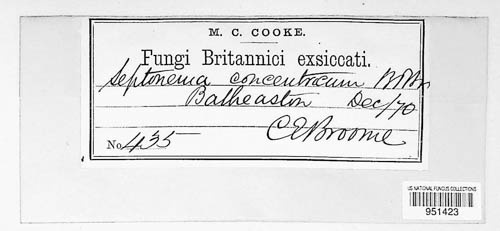 M. C. COOKE.
Fungi Britannici exsiccati.
Septonema concentricum B & Br
Batheaston Dec/70
C E Broome
No 435
US NATIONAL FUNGUS COLLECTIONS
951423